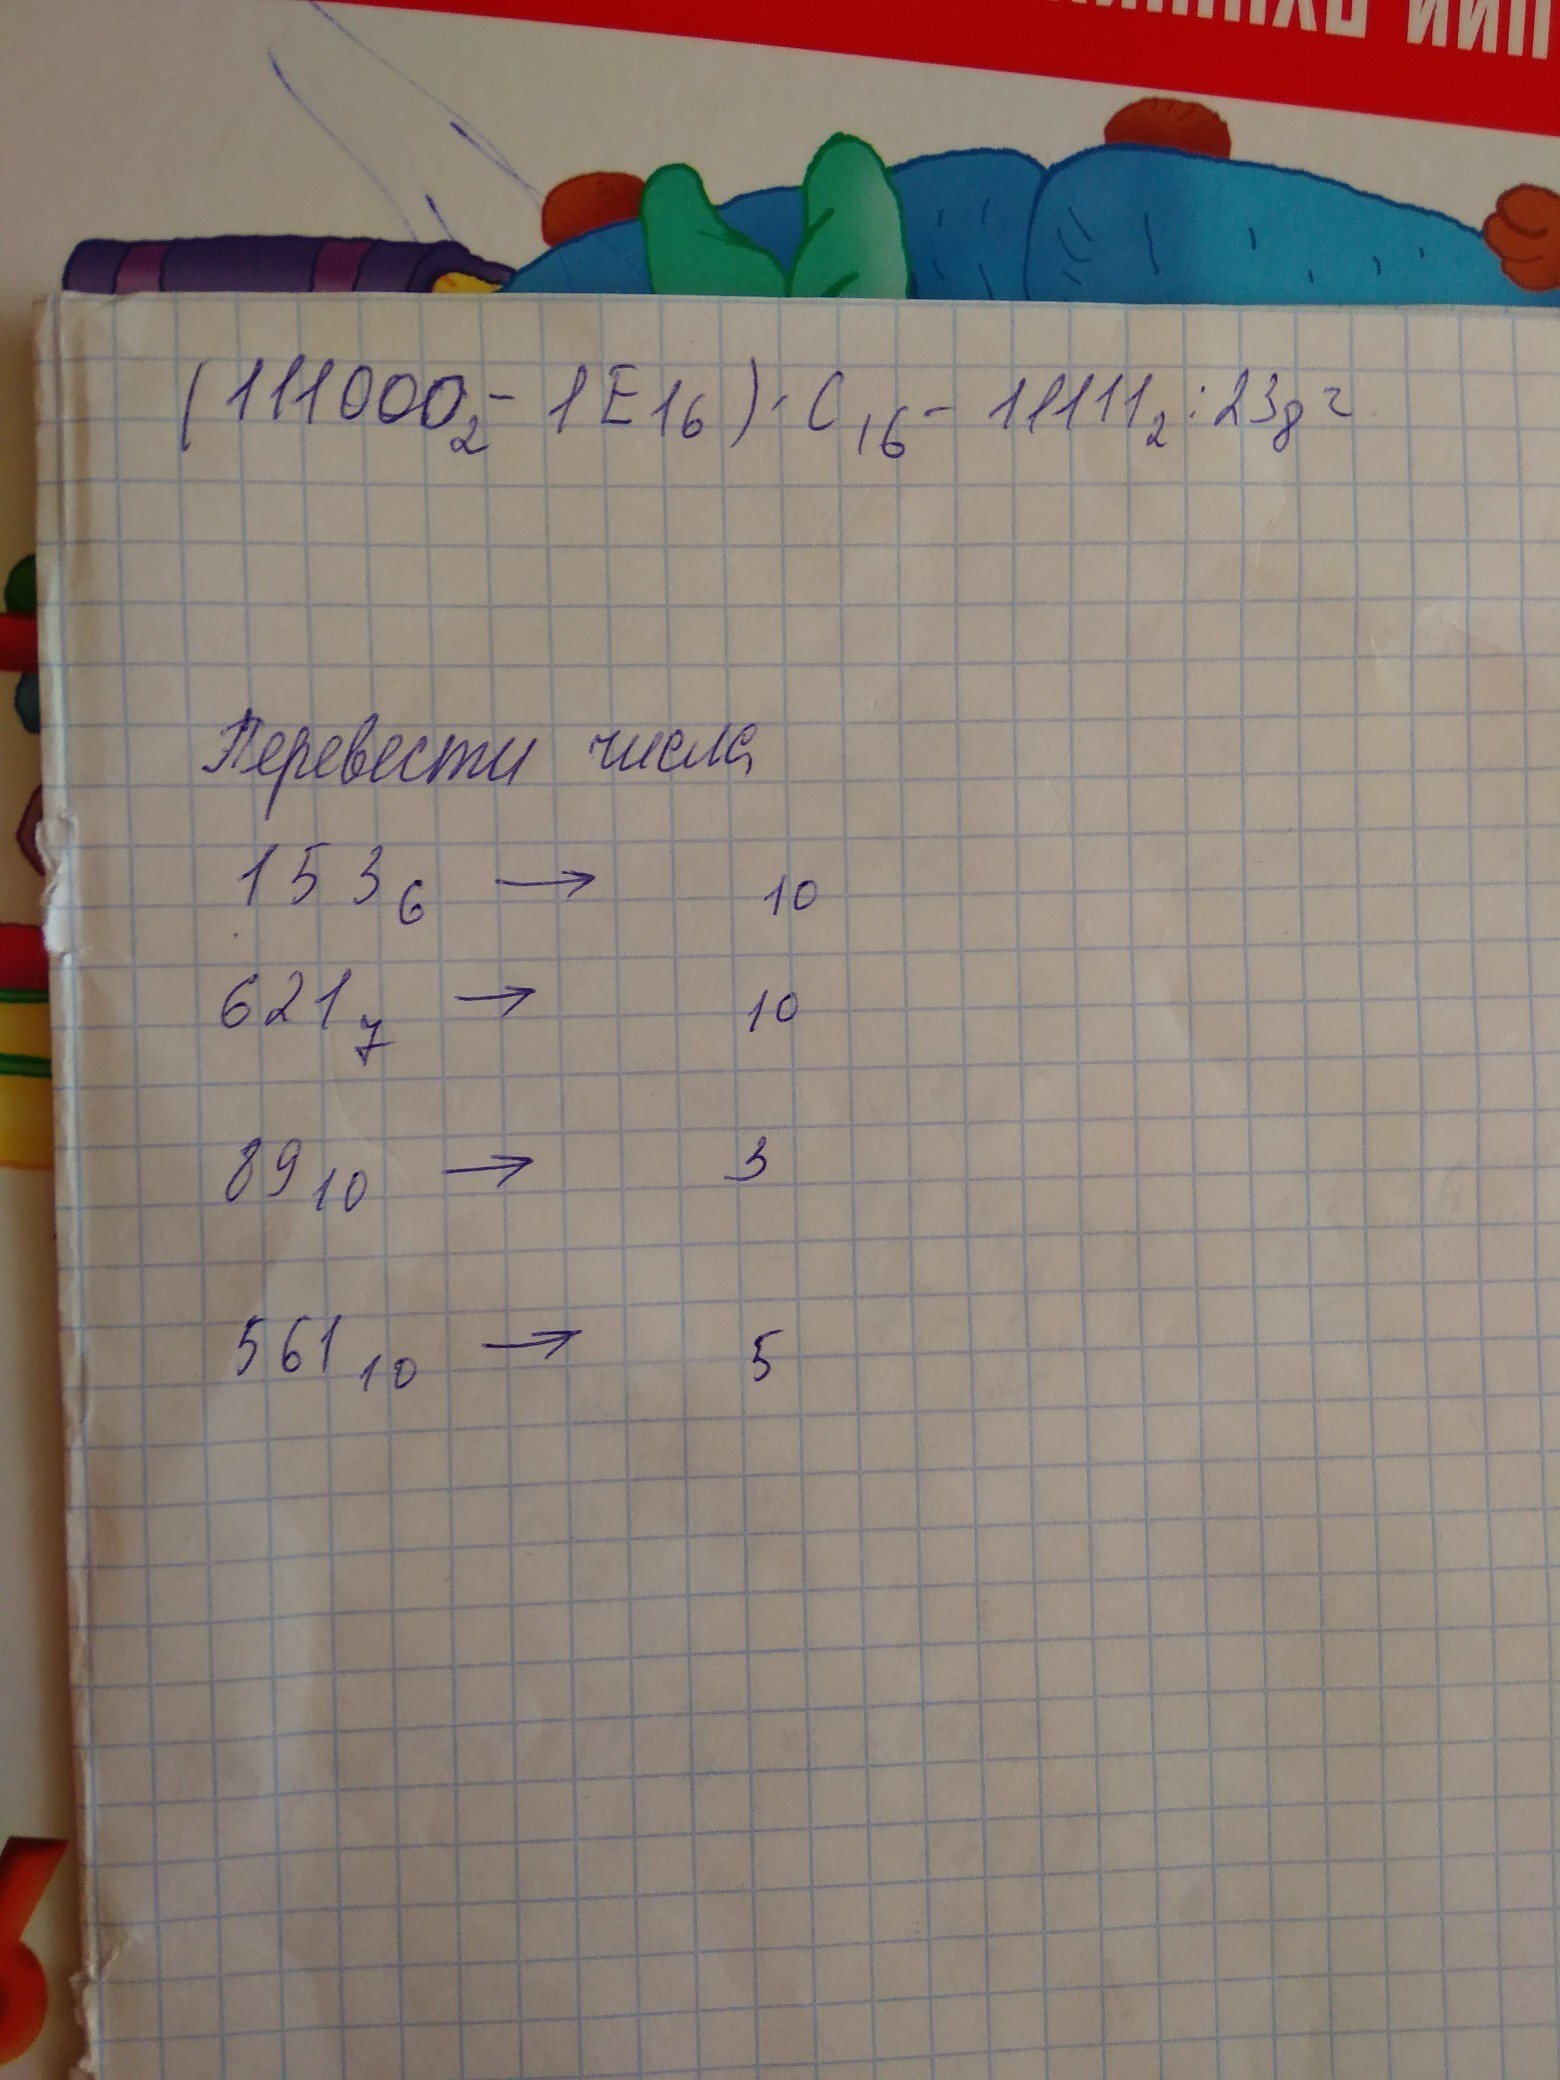 (111000₂ - 1E₁₆) · C₁₆ - 11111₂ : 23₈ =
Перевести числа
153₆ → 10
621₇ → 10
89₁₀ → 3
561₁₀ → 5